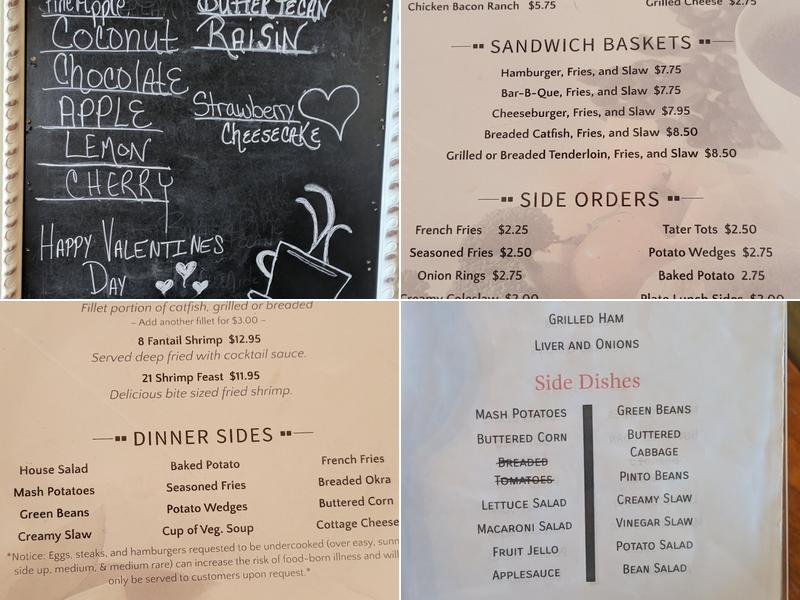 Pineapple
Coconut
Chocolate
Apple
Lemon
Cherry
Butter Pecan
Raisin
Strawberry
Cheesecake
Happy Valentines
Day
Chicken Bacon Ranch $5.75
Grilled Cheese $2.75
SANDWICH BASKETS
Hamburger, Fries, and Slaw $7.75
Bar-B-Que, Fries, and Slaw $7.75
Cheeseburger, Fries, and Slaw $7.95
Breaded Catfish, Fries, and Slaw $8.50
Grilled or Breaded Tenderloin, Fries, and Slaw $8.50
SIDE ORDERS
French Fries $2.25
Seasoned Fries $2.50
Onion Rings $2.75
Creamy Coleslaw $2.00
Tater Tots $2.50
Potato Wedges $2.75
Baked Potato 2.75
Plate Lunch Sides $2.00
Fillet portion of catfish, grilled or breaded
– Add another fillet for $3.00 –
8 Fantail Shrimp $12.95
Served deep fried with cocktail sauce.
21 Shrimp Feast $11.95
Delicious bite sized fried shrimp.
DINNER SIDES
House Salad
Mash Potatoes
Green Beans
Creamy Slaw
Baked Potato
Seasoned Fries
Potato Wedges
Cup of Veg. Soup
French Fries
Breaded Okra
Buttered Corn
Cottage Cheese
*Notice: Eggs, steaks, and hamburgers requested to be undercooked (over easy, sunn
side up, medium, & medium rare) can increase the risk of food-born illness and will
only be served to customers upon request.*
Grilled Ham
Liver and Onions
Side Dishes
Mash Potatoes
Buttered Corn
Breaded
Tomatoes
Lettuce Salad
Macaroni Salad
Fruit Jello
Applesauce
Green Beans
Buttered
Cabbage
Pinto Beans
Creamy Slaw
Vinegar Slaw
Potato Salad
Bean Salad